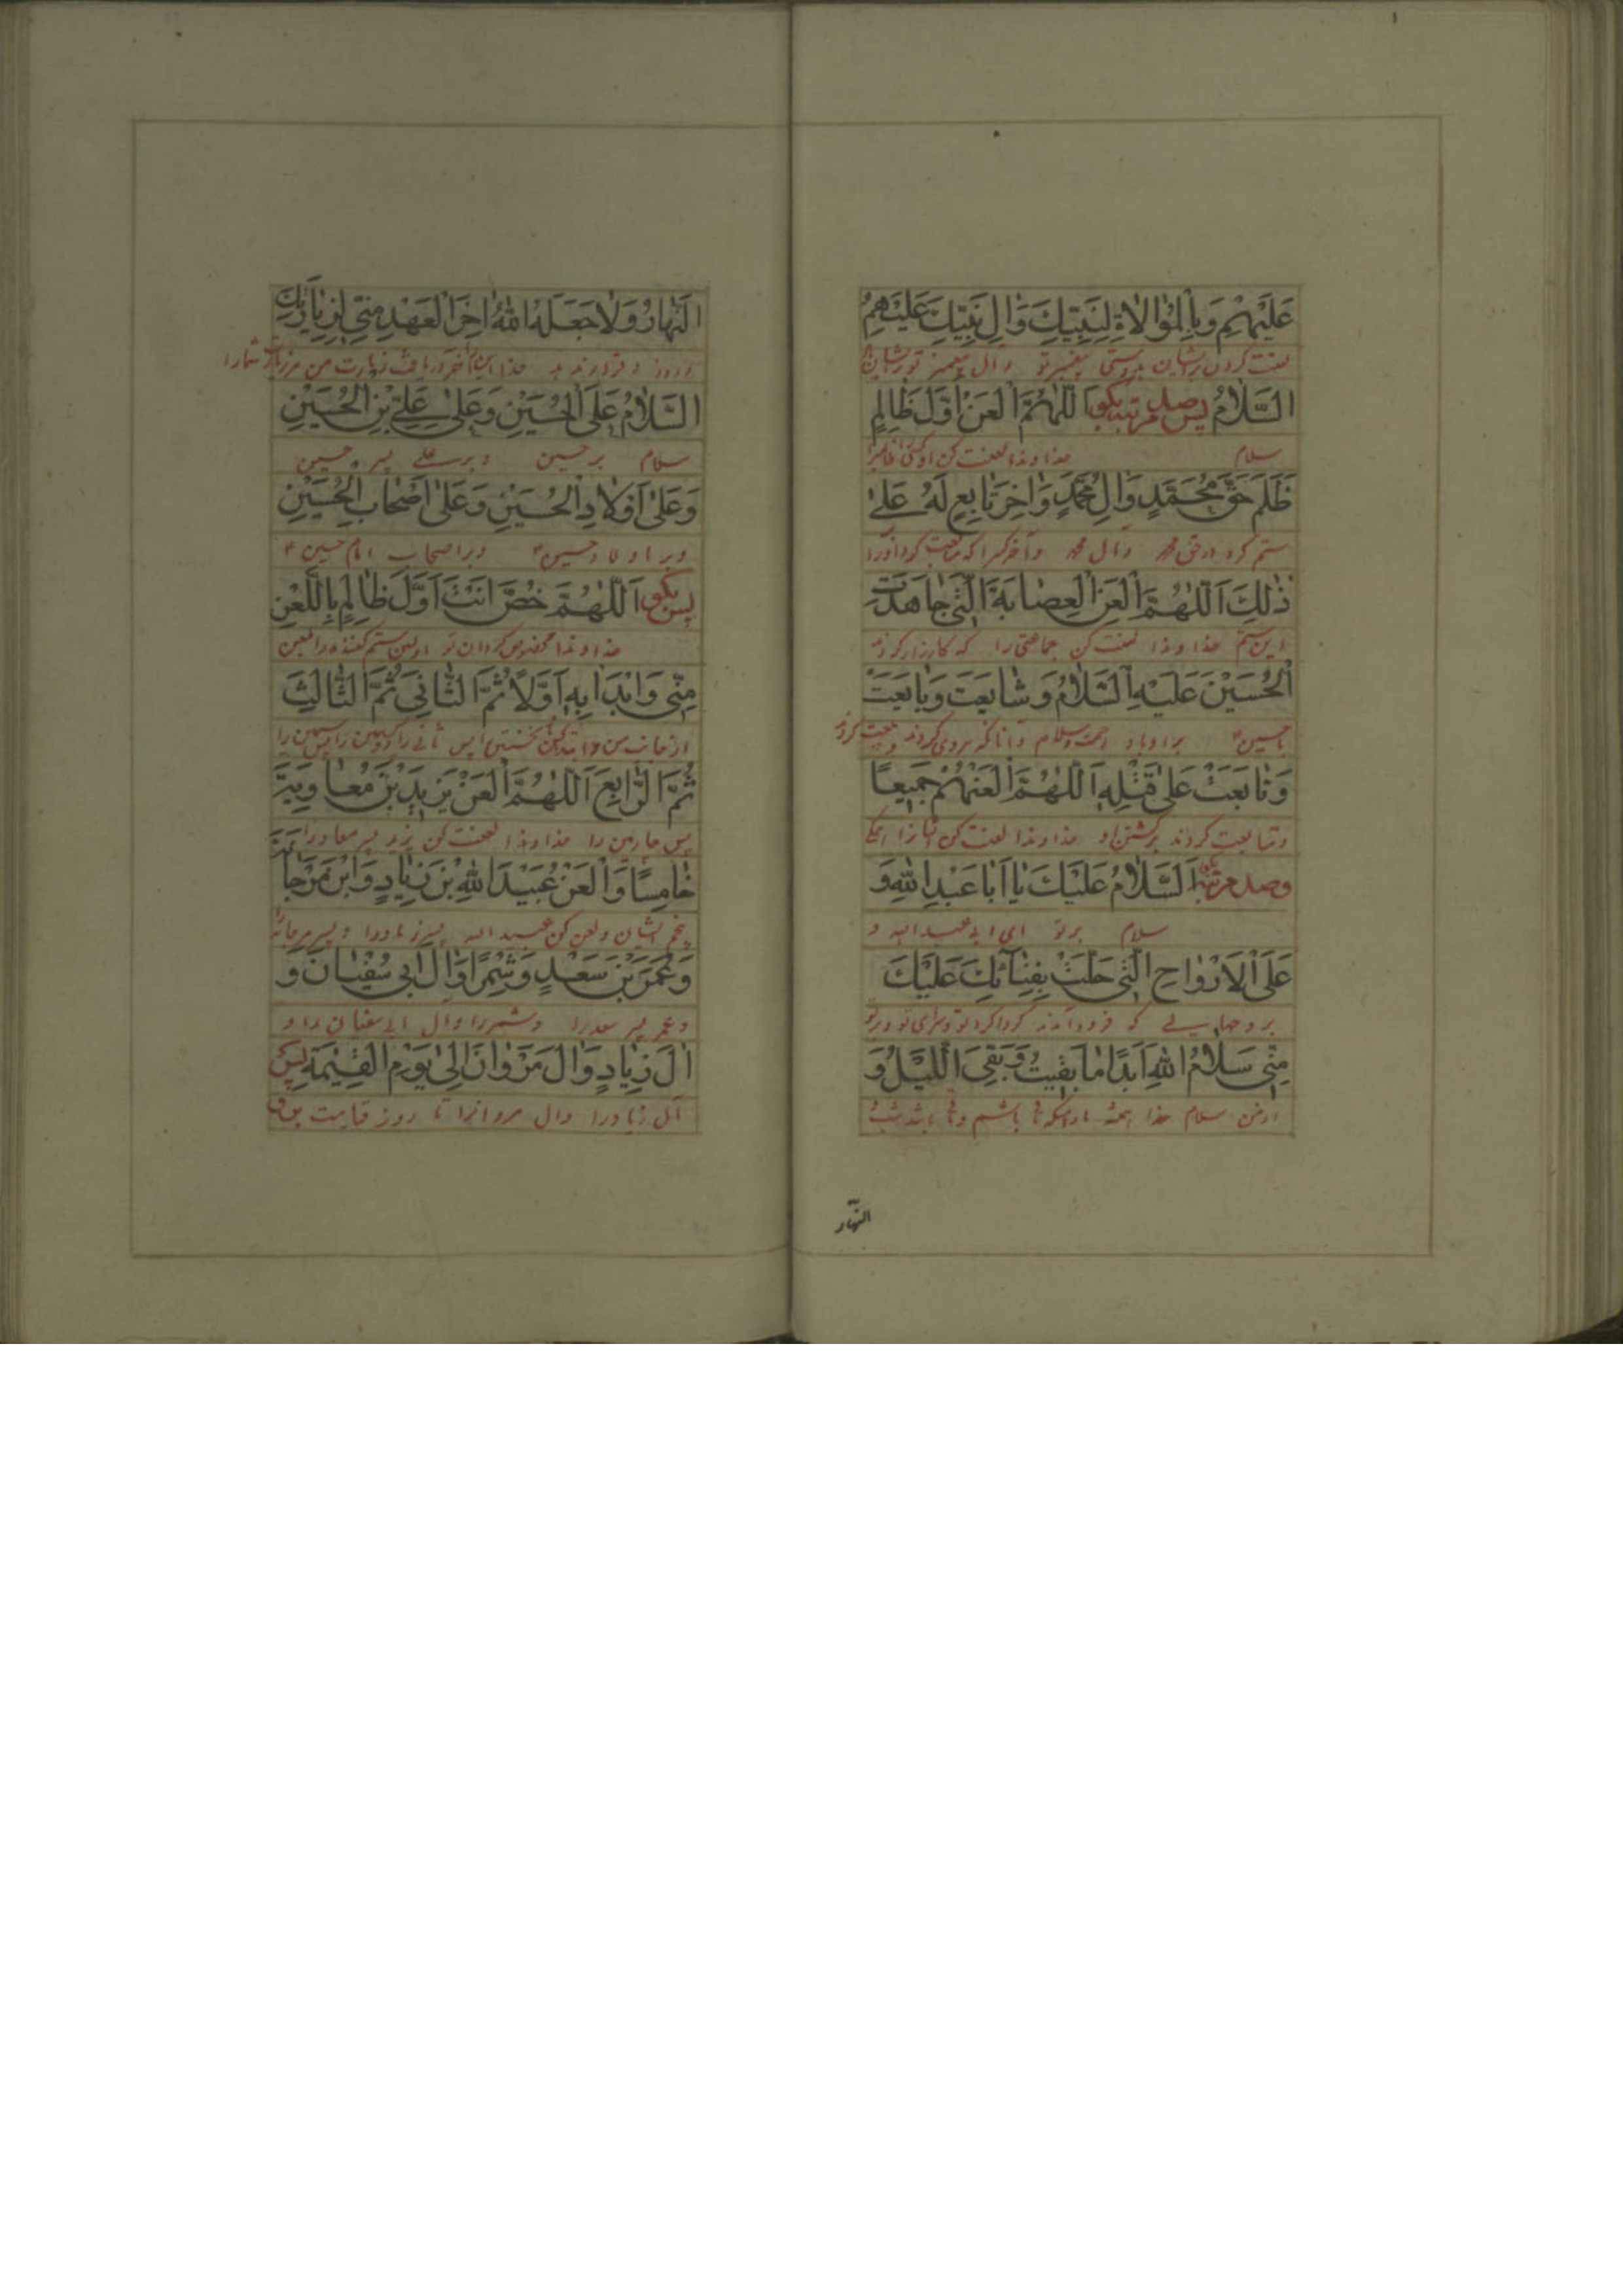 عَلَيْهِمْ وَبِالْمُوٰالاةِ لِنَبِيِّكَ وَاٰلِ نَبِيِّكَ عَلَيْهِمُ
لعنت کردن برایشان بدوستی پیغمبر تو وآل پیغمبر تو برایشان
السَّلامُ پس صد مرتبه بگو اَللّٰهُمَّ الْعَنْ اَوَّلَ ظٰالِمٍ
سلام خداوندا لعنت کن اول ظالمیرا
ظَلَمَ حَقَّ مُحَمَّدٍ وَاٰلِ مُحَمَّدٍ وَاٰخِرَ تٰابِعٍ لَهُ عَلىٰ
ستم کرد در حق محمد وآل محمد وآخر کسرا که متابعت کرد اورا
ذٰلِكَ اَللّٰهُمَّ الْعَنِ الْعِصٰابَةَ الَّتي جٰاهَدَتِ
این ستم خداوندا لعنت کن جماعتی را که کارزار کردند
الْحُسَيْنَ عَلَيْهِ السَّلامُ وَشٰايَعَتْ وَبٰايَعَتْ
با حسین براو باد رحمت وسلام وآنانکه پیروی کردند وبیعت کردند
وَتٰابَعَتْ عَلىٰ قَتْلِهِ اَللّٰهُمَّ الْعَنْهُمْ جَميعًا
ومتابعت کردند برکشتن او خداوندا لعنت کن ایشانرا همگی
وصد مرتبه بگو اَلسَّلامُ عَلَيْكَ يٰا اَبٰا عَبْدِ اللهِ وَ
سلام برتو ای ابی عبدالله و
عَلَى الْاَرْوٰاحِ الَّتي حَلَّتْ بِفِنٰائِكَ عَلَيْكَ
بر روحهایی که فرود آمدند گرداگرد تو وسرای تو برتو
مِنّي سَلامُ اللهِ اَبَدًا مٰا بَقيتُ وَبَقِيَ اللَّيْلُ وَ
از من سلام خدا همیشه مادامیکه باشم وتا باشد شب
النهار
النَّهٰارُ وَلاٰ جَعَلَهُ اللهُ اٰخِرَ الْعَهْدِ مِنّي لِزِيٰارَتِكَ
وروز وقرار ندهد خدا این را آخر دریافت زیارت من مر زیارت شمارا
السَّلامُ عَلَى الْحُسَيْنِ وَعَلىٰ عَلِيِّ بْنِ الْحُسَيْنِ
سلام بر حسین وبر علی پسر حسین
وَعَلىٰ اَوْلادِ الْحُسَيْنِ وَعَلىٰ اَصْحٰابِ الْحُسَيْنِ
وبر اولاد حسین وبر اصحاب امام حسین
پس بگو اَللّٰهُمَّ خُصَّ اَنْتَ اَوَّلَ ظٰالِمٍ بِاللَّعْنِ
خداوندا مخصوص گردان تو اولین ستم کننده را بلعن
مِنّي وَابْدَاْ بِهِ اَوَّلاً ثُمَّ الثّٰانِيَ ثُمَّ الثّٰالِثَ
از جانب من وابتدا کن نخستین پس ثانی را دویمین را پس سیمین را
ثُمَّ الرّٰابِعَ اَللّٰهُمَّ الْعَنْ يَزيدَ بْنَ مُعٰاوِيَةَ
پس چارمین را خداوندا لعنت کن یزید پسر معاویه را
خٰامِسًا وَالْعَنْ عُبَيْدَ اللهِ بْنَ زِيٰادٍ وَابْنَ مَرْجٰانَةَ
پنجم ایشان ولعن کن عبیدالله پسر زیادرا وپسر مرجانه
وَعُمَرَ بْنَ سَعْدٍ وَشِمْرًا وَاٰلَ اَبي سُفْيٰانَ وَ
وعمر پسر سعدرا وشمررا وآل ابی سفیان را و
اٰلَ زِيٰادٍ وَاٰلَ مَرْوٰانَ اِلىٰ يَوْمِ الْقِيٰمَةِ پس
آل زیادرا وآل مروانرا تا روز قیامت